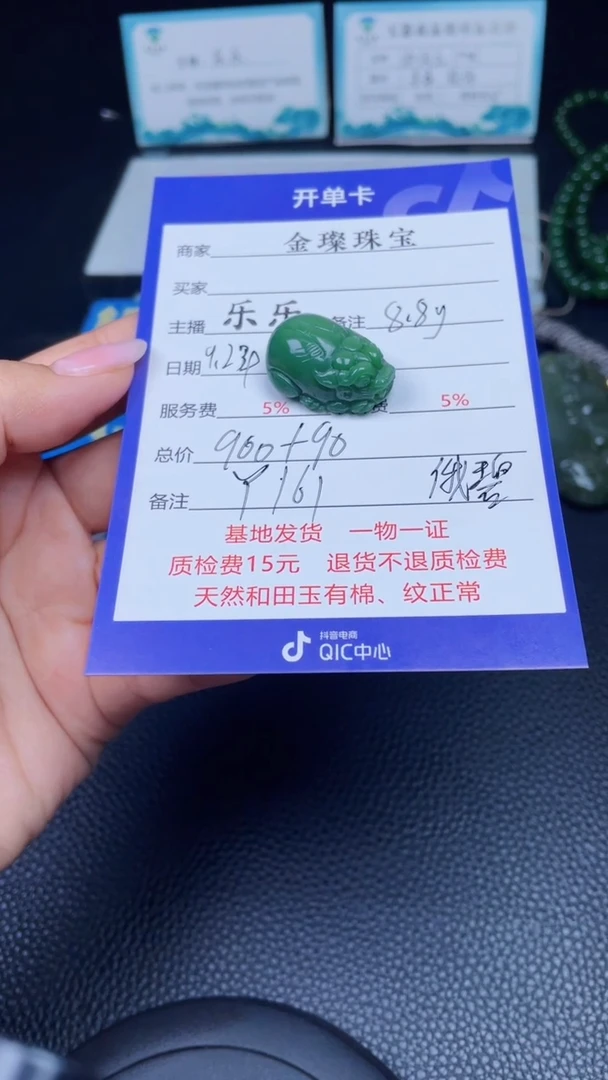 开单卡
商家 金璨珠宝
买家
主播 乐乐 备注 8.8g
日期 9.23
服务费 5% 费 5%
总价 900+90
备注 Y161 俄碧
基地发货 一物一证
质检费15元 退货不退质检费
天然和田玉有棉、纹正常
抖音电商
QIC中心